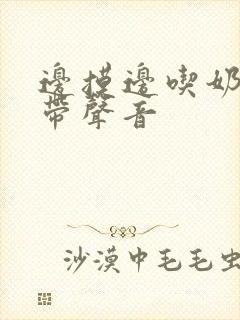 邊摸邊喫奶
帶聲音
沙漠中毛毛虫